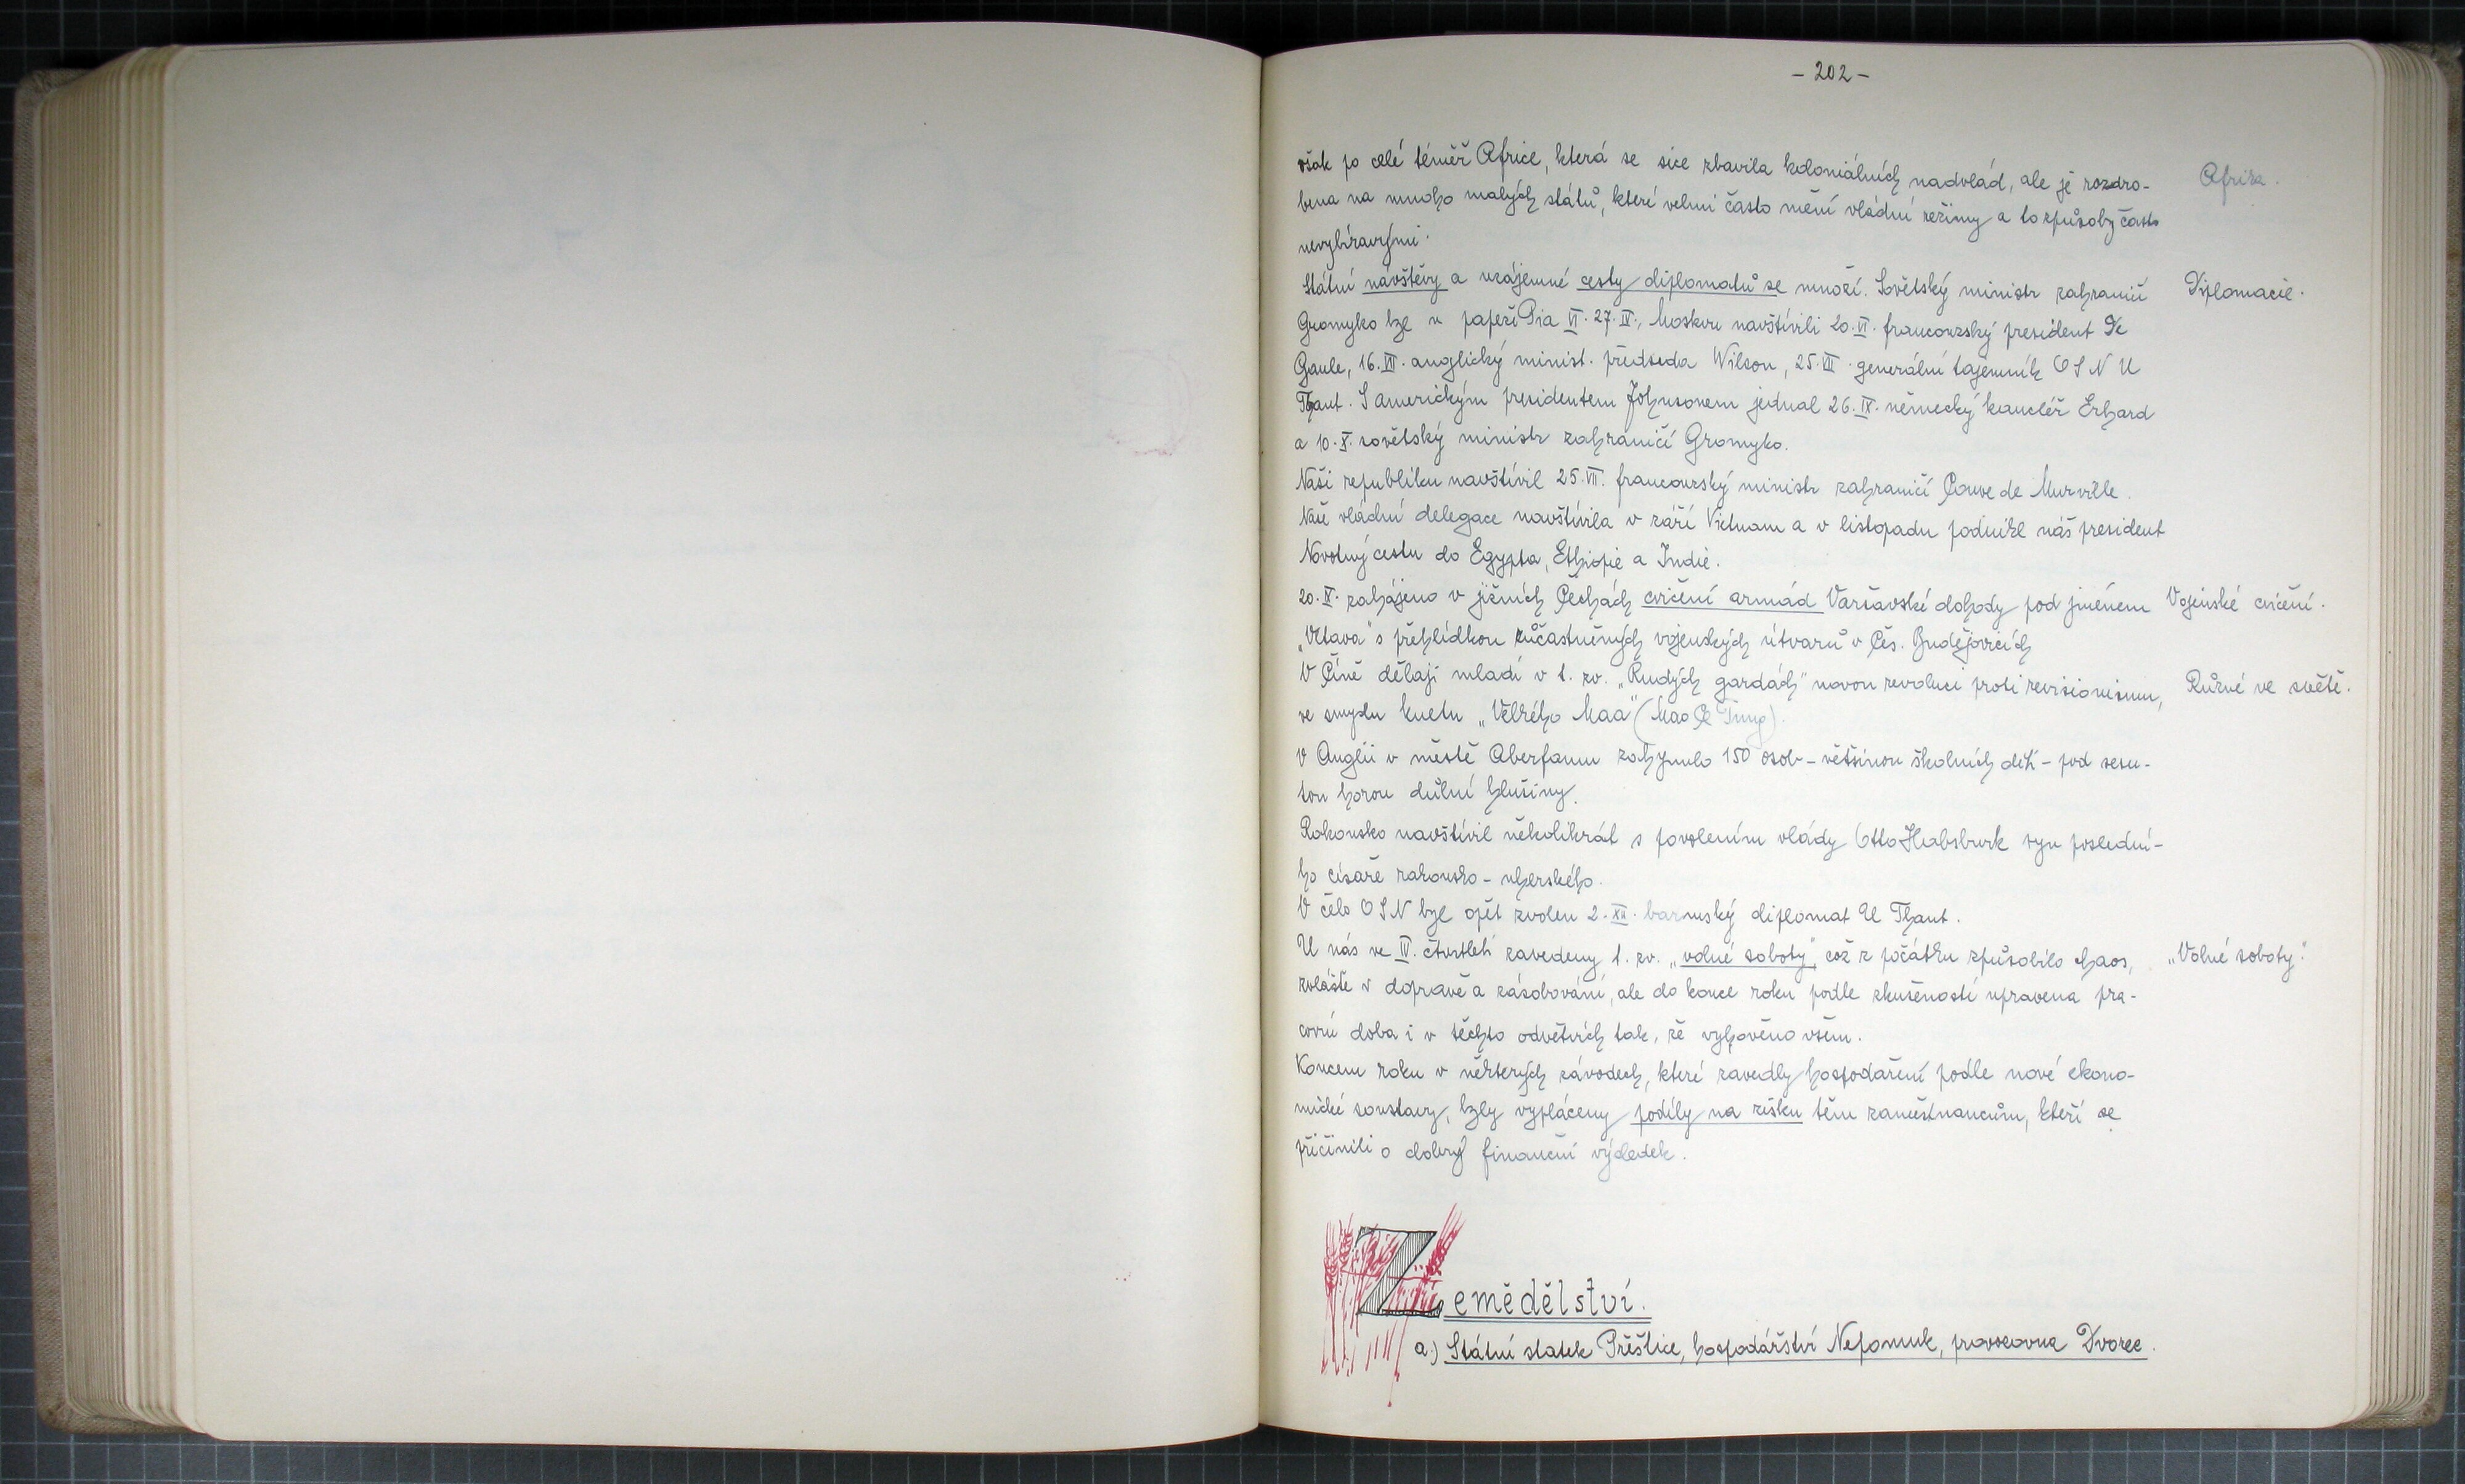 - 202 -
však po celé téměř Africe, která se sice zbavila koloniálních nadvlád, ale je rozdro-
Afrika.
bena na mnoho malých států, které velmi často mění vládní režimy a to způsoby často
nevybíravými.
Státní návštěvy a vzájemné cesty diplomatů se množí. Sovětský ministr zahraničí
Diplomacie.
Gromyko byl u papeže Pia VI. 27. IV., Moskvu navštívili 20. VI. francouzský president De
Gaule, 16. VII. anglický minist. předseda Wilson, 25. VII. generální tajemník OSN U
Thant. S americkým presidentem Johnsonem jednal 26. IX. německý kancléř Erhard
a 10. X. sovětský ministr zahraničí Gromyko.
Naši republiku navštívil 25. VII. francouzský ministr zahraničí Couve de Murville.
Naše vládní delegace navštívila v září Vietnam a v listopadu podnikl náš president
Novotný cestu do Egypta, Ethiopie a Indie.
20. IX. zahájeno v jižních Čechách cvičení armád Varšavské dohody pod jménem
Vojenské cvičení.
„Vltava" s přehlídkou zúčastněných vojenských útvarů v Čes. Budějovicích
V Číně dělají mladí v t. zv. „Rudých gardách" novou revoluci proti revisionismu,
Různé ve světě.
ve smyslu kultu „Velkého Maa" (Mao Ce Tung).
V Anglii v městě Aberfanu zahynulo 150 osob - většinou školních dětí - pod sesu-
tou horou důlní hlušiny.
Rakousko navštívil několikrát s povolením vlády Otto Habsburk syn poslední-
ho císaře rakousko - uherského.
V čelo OSN byl opět zvolen 2. XII. barmský diplomat U Thant.
U nás ve IV. čtvrtletí zavedeny t. zv. „volné soboty", což z počátku způsobilo chaos,
„Volné soboty".
zvláště v dopravě a zásobování, ale do konce roku podle zkušeností upravena pra-
covní doba i v těchto odvětvích tak, že vyhověno všem.
Koncem roku v některých závodech, které zavedly hospodaření podle nové ekono-
mické soustavy, byly vypláceny podíly na zisku těm zaměstnancům, kteří se
přičinili o dobrý finanční výsledek.
Zemědělství.
a.) Státní statek Přeštice, hospodářství Nepomuk, provozovna Dvorec.